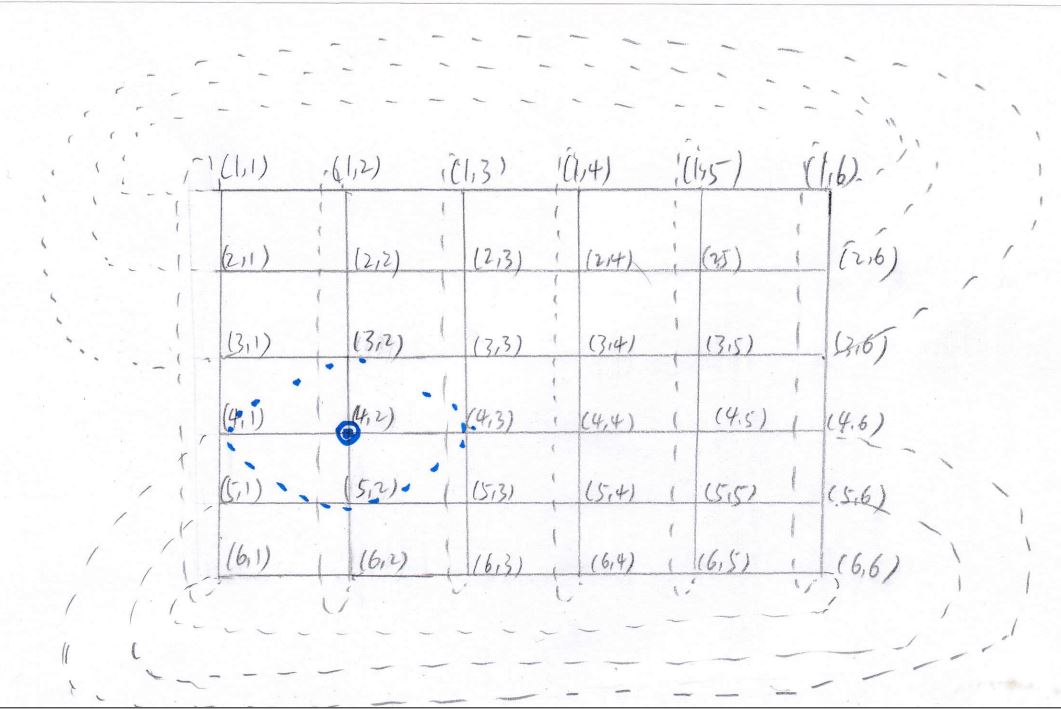 (1,1) (1,2) (1,3) (1,4) (1,5) (1,6)
(2,1) (2,2) (2,3) (2,4) (25) (2,6)
(3,1) (3,2) (3,3) (3,4) (3,5) (3,6)
(4,1) (4,2) (4,3) (4,4) (4.5) (4.6)
(5,1) (5,2) (5,3) (5,4) (5,5) (5,6)
(6,1) (6,2) (6,3) (6,4) (6,5) (6,6)